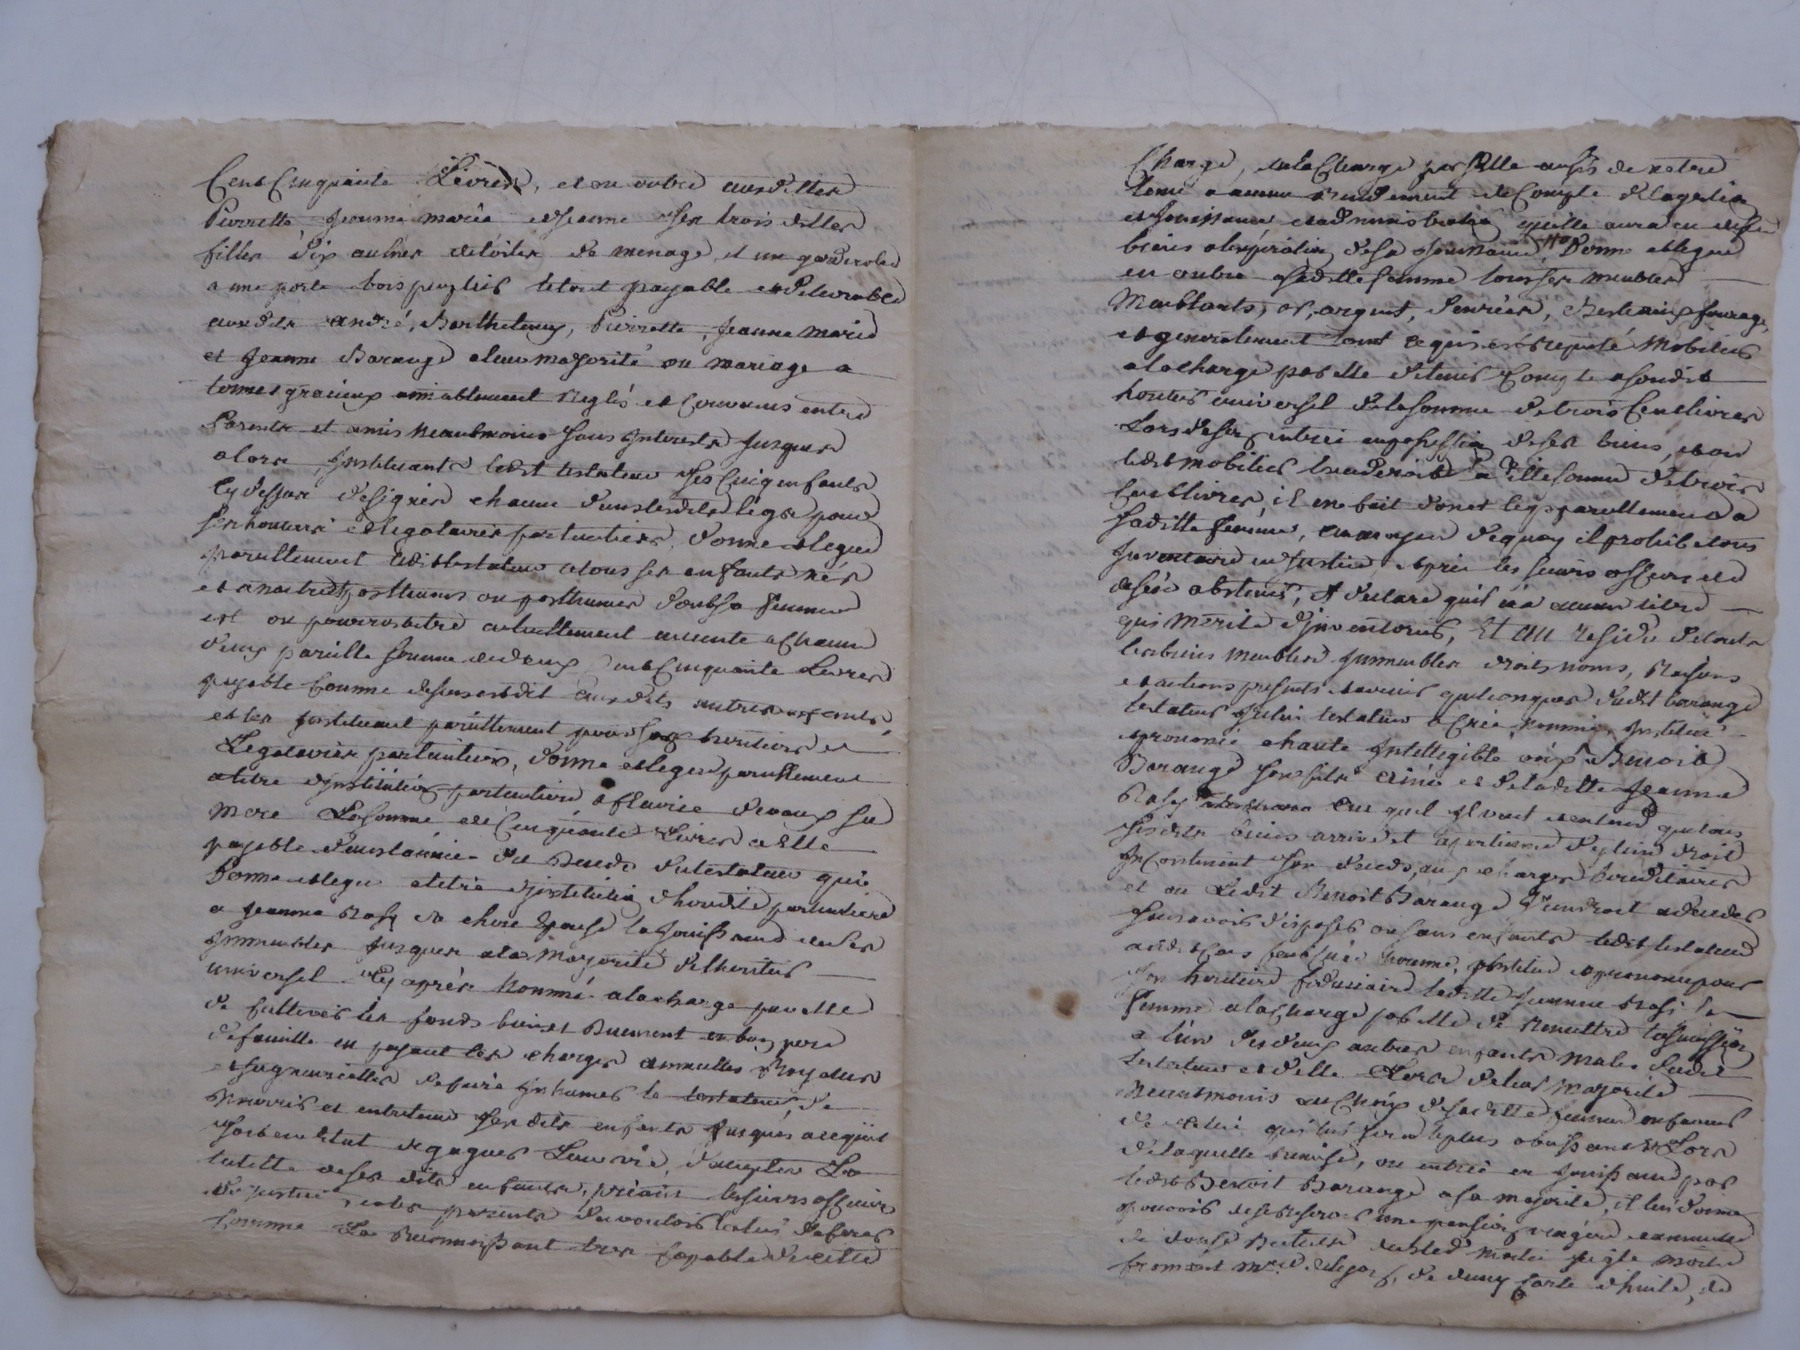 Cent Cinquante Livres, et en outre auxdittes
Pierrette Jeanne marie et Jeanne ses trois dittes
filles dix aulnes de toiles de menage, et un garderobe
a une porte bois peuplié le tout payable et delivrable
auxdits andré, Barthelemy, Pierrette, Jeanne marie
et Jeanne Barange a leur majorité ou mariage a
termes gracieux amiablement reglés et convenus entre
Parents et amis neantmoins sans Interests Jusques
alors, Instituants ledit testateur ses Cinq enfants
Cy dessus designés chacun dans lesdits legs pour
ses heritiers et legataires particuliers, donne et legue
pareillement ledit testateur a tous ses enfants nés
et a naitre posthumes ou posthumes dont sa femme
est ou pourroit etre actuellement enceinte a chacun
d'eux pareille somme de deux Cent Cinquante Livres
payable Comme dessus est dit auxdits autres enfants,
et les Instituant pareillement pour ses heritiers et
Legataires particuliers, donne et legue pareillement
a titre d'institution particuliere a fleurie devaux sa
mere La somme de Cinquante Livres a Elle
payable dans l'année du Deceds du testateur qui
Donne et legue a titre d'institution d'heredité particuliere
a Jeanne Rosy sa chere Epouse la Jouissance de ses
Immeubles Jusques a la majorité de l'heritier
universel Cy après nommé a la charge par elle
de Cultiver les fonds biens et Duement en bon pere
de famille en payant les charges annuelles Royalles
et seigneurialles de faire Inhumer le testateur, de
nourrir et entretenir ses dits enfants Jusques a ce qu'ils
soit en Etat de gagner Leur vie, d'accepter La
tutelle de ses dits enfants, priant les sieurs officiers
de justice et les parents de vouloir la lui deferer
Comme La Reconnoissant tres Capable de cette
Charge, et a la Charge par Elle aussi de n'etre
tenue a aucun rendement de Compte de la gestion
et Jouissance et administration qu'elle aura eu de ses
biens a l'expiration de sa Jouissance, Donne et legue
en outre a sa ditte femme tous ses meubles
Meublants, or, argent, Denrées, Bestiaux fourage,
et generalement tout ce qui est reputé Mobilier
a la charge par elle de tenir Compte a son dit
heritier universel de la somme de trois Cent livres
Lors de son entrée en possession de ses biens, et ou
ledit mobilier la ditte somme de trois
Cent livres, il en fait don et legs pareillement a
sa ditte femme, au moyen de quoy il prohibe tous
Inventaire en Justice et prie les sieurs officiers de
de s'en abstenir, et declare qu'il n'a aucun titre
qui merite d'inventorier, Et Au residu de tous
les biens meubles Immeubles droits noms, Raisons
et actions presents et avenir quelconques dudit barange
testateur Icelui testateur a Créé, nommé, Institué
et prononcé a haute Intelligible voix Benoit
Barange son fils ainé et de la ditte Jeanne
Rosy qu'il veut et entend que tous
ses dits biens arrivent et apartienne de plein droit
Incontinent son deceds, aux charges hereditaires
et ou Ledit Benoit Barange viendroit a deceder
sans avoir disposé ou sans enfants ledit testateur
audit Cas a nommé, substitué et prononcé pour
son heritiere fiduciaire laditte Jeanne Rosy sa
femme a la charge par elle de remettre la succession
a l'un des deux autres enfants males dudit
testateur et d'elle Lors de leur majorité
neantmoins au choix de sa ditte femme en faveur
de celui qui lui sera le plus obeissant et Lors
de laquelle remise, ou entrée en Jouissance par
ledit Benoit Barange a sa majorité, il lui donne
pouvoir de se reserver une pension viagere annuelle
de douze Bichets de bled moitié seigle moitié
froment de deux Carte d'huile, de